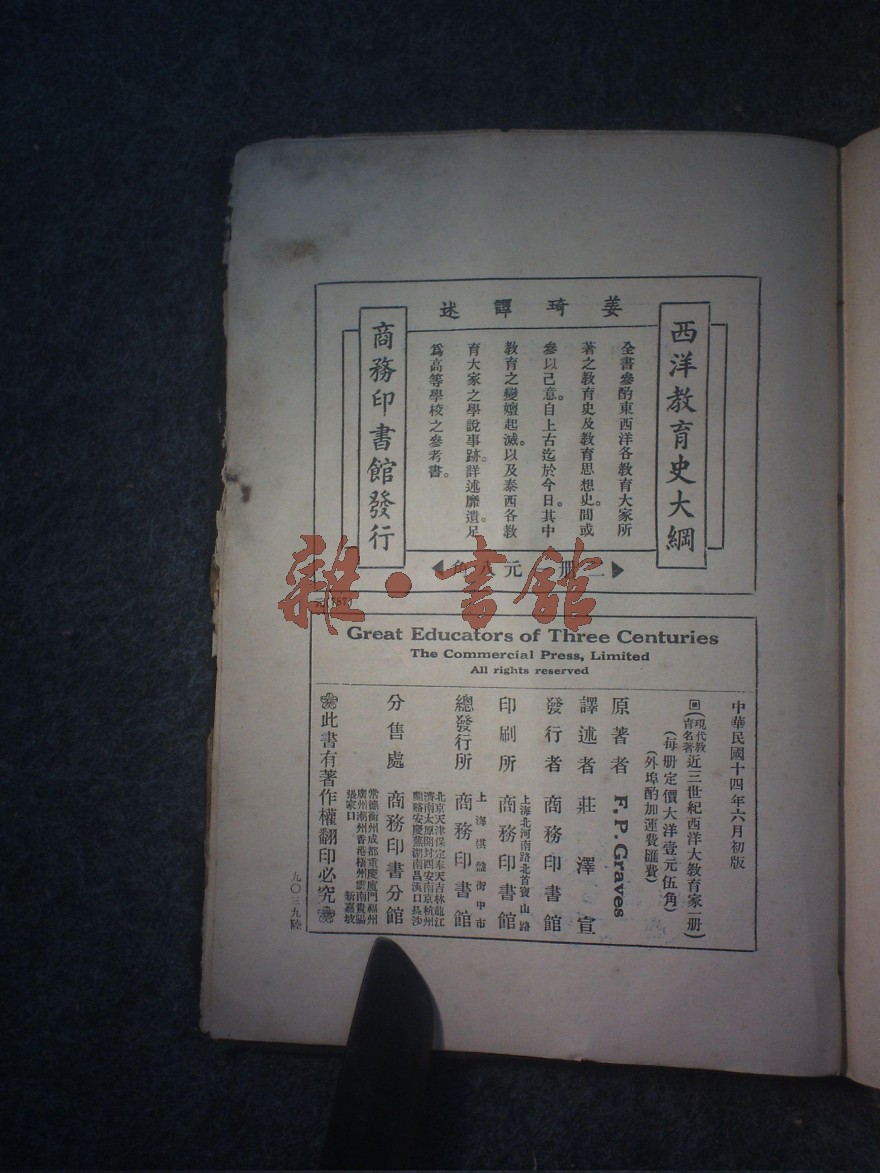 姜琦譯述
西洋教育史大綱
全書參酌東西洋各教育大家所
著之教育史及教育思想史。間或
參以己意。自上古迄於今日。其中
教育之變嬗起滅。以及泰西各教
育大家之學說事跡。詳述靡遺。足
爲高等學校之參考書。
商務印書館發行
二册一元八角
雜·書館
元(787)
Great Educators of Three Centuries
The Commercial Press, Limited
All rights reserved
中華民國十四年六月初版
(現代教育名著 近三世紀西洋大教育家一册)
(每册定價大洋壹元伍角)
(外埠酌加運費匯費)
原著者 F. P. Graves
譯述者 莊澤宣
發行者 商務印書館
印刷所 上海北河南路北首寶山路 商務印書館
總發行所 上海棋盤街中市 商務印書館
分售處 商務印書分館
北京天津保定奉天吉林龍江
濟南太原開封西安南京杭州
蘭谿安慶蕪湖南昌漢口長沙
常德衡州成都重慶廈門福州
廣州潮州香港梧州雲南貴陽
張家口 新嘉坡
此書有著作權翻印必究
九〇三九陸